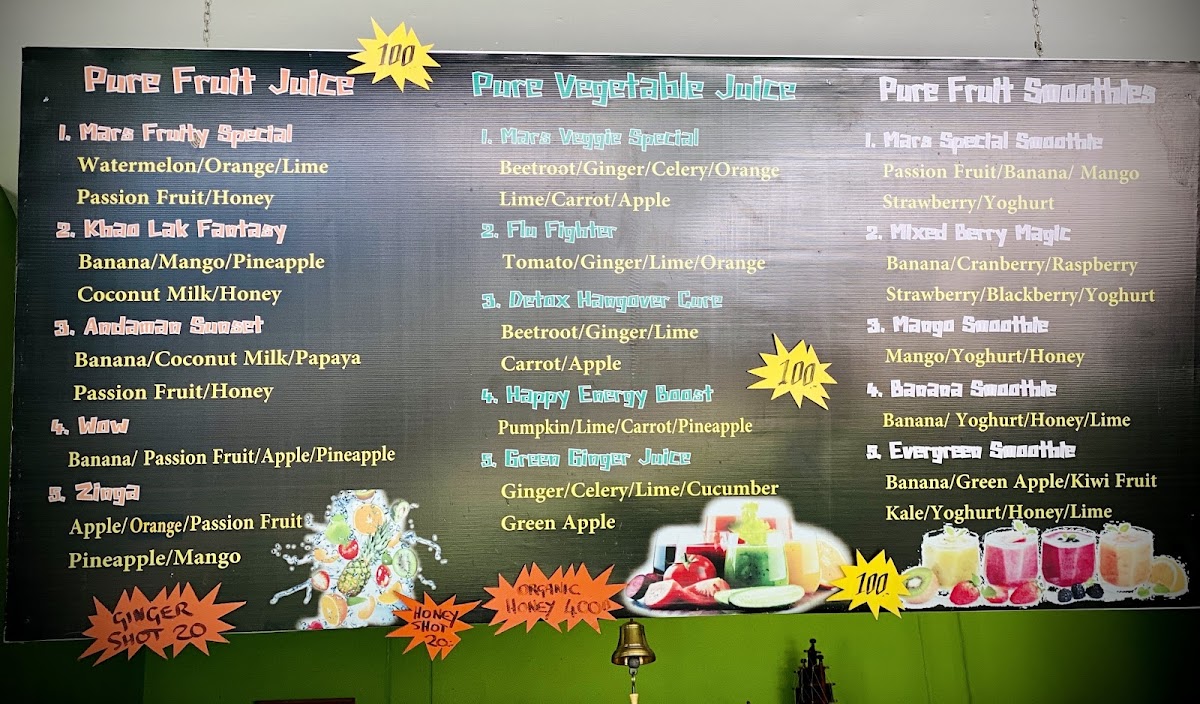 Pure Fruit Juice
100
1. Mars Fruity Special
Watermelon/Orange/Lime
Passion Fruit/Honey
2. Khao Lak Fantasy
Banana/Mango/Pineapple
Coconut Milk/Honey
3. Andaman Sunset
Banana/Coconut Milk/Papaya
Passion Fruit/Honey
4. Wow
Banana/ Passion Fruit/Apple/Pineapple
5. Zinga
Apple/Orange/Passion Fruit
Pineapple/Mango
GINGER
SHOT 20
HONEY
SHOT
20.-
Pure Vegetable Juice
1. Mars Veggie Special
Beetroot/Ginger/Celery/Orange
Lime/Carrot/Apple
2. Flu Fighter
Tomato/Ginger/Lime/Orange
3. Detox Hangover Cure
Beetroot/Ginger/Lime
Carrot/Apple
100.-
4. Happy Energy Boost
Pumpkin/Lime/Carrot/Pineapple
5. Green Ginger Juice
Ginger/Celery/Lime/Cucumber
Green Apple
ORGANIC
Pure Fruit Smoothies
1. Mars Special Smoothie
Passion Fruit/Banana/ Mango
Strawberry/Yoghurt
2. Mixed Berry Magic
Banana/Cranberry/Raspberry
Strawberry/Blackberry/Yoghurt
3. Mango Smoothie
Mango/Yoghurt/Honey
4. Banana Smoothie
Banana/ Yoghurt/Honey/Lime
5. Evergreen Smoothie
Banana/Green Apple/Kiwi Fruit
Kale/Yoghurt/Honey/Lime
100.-